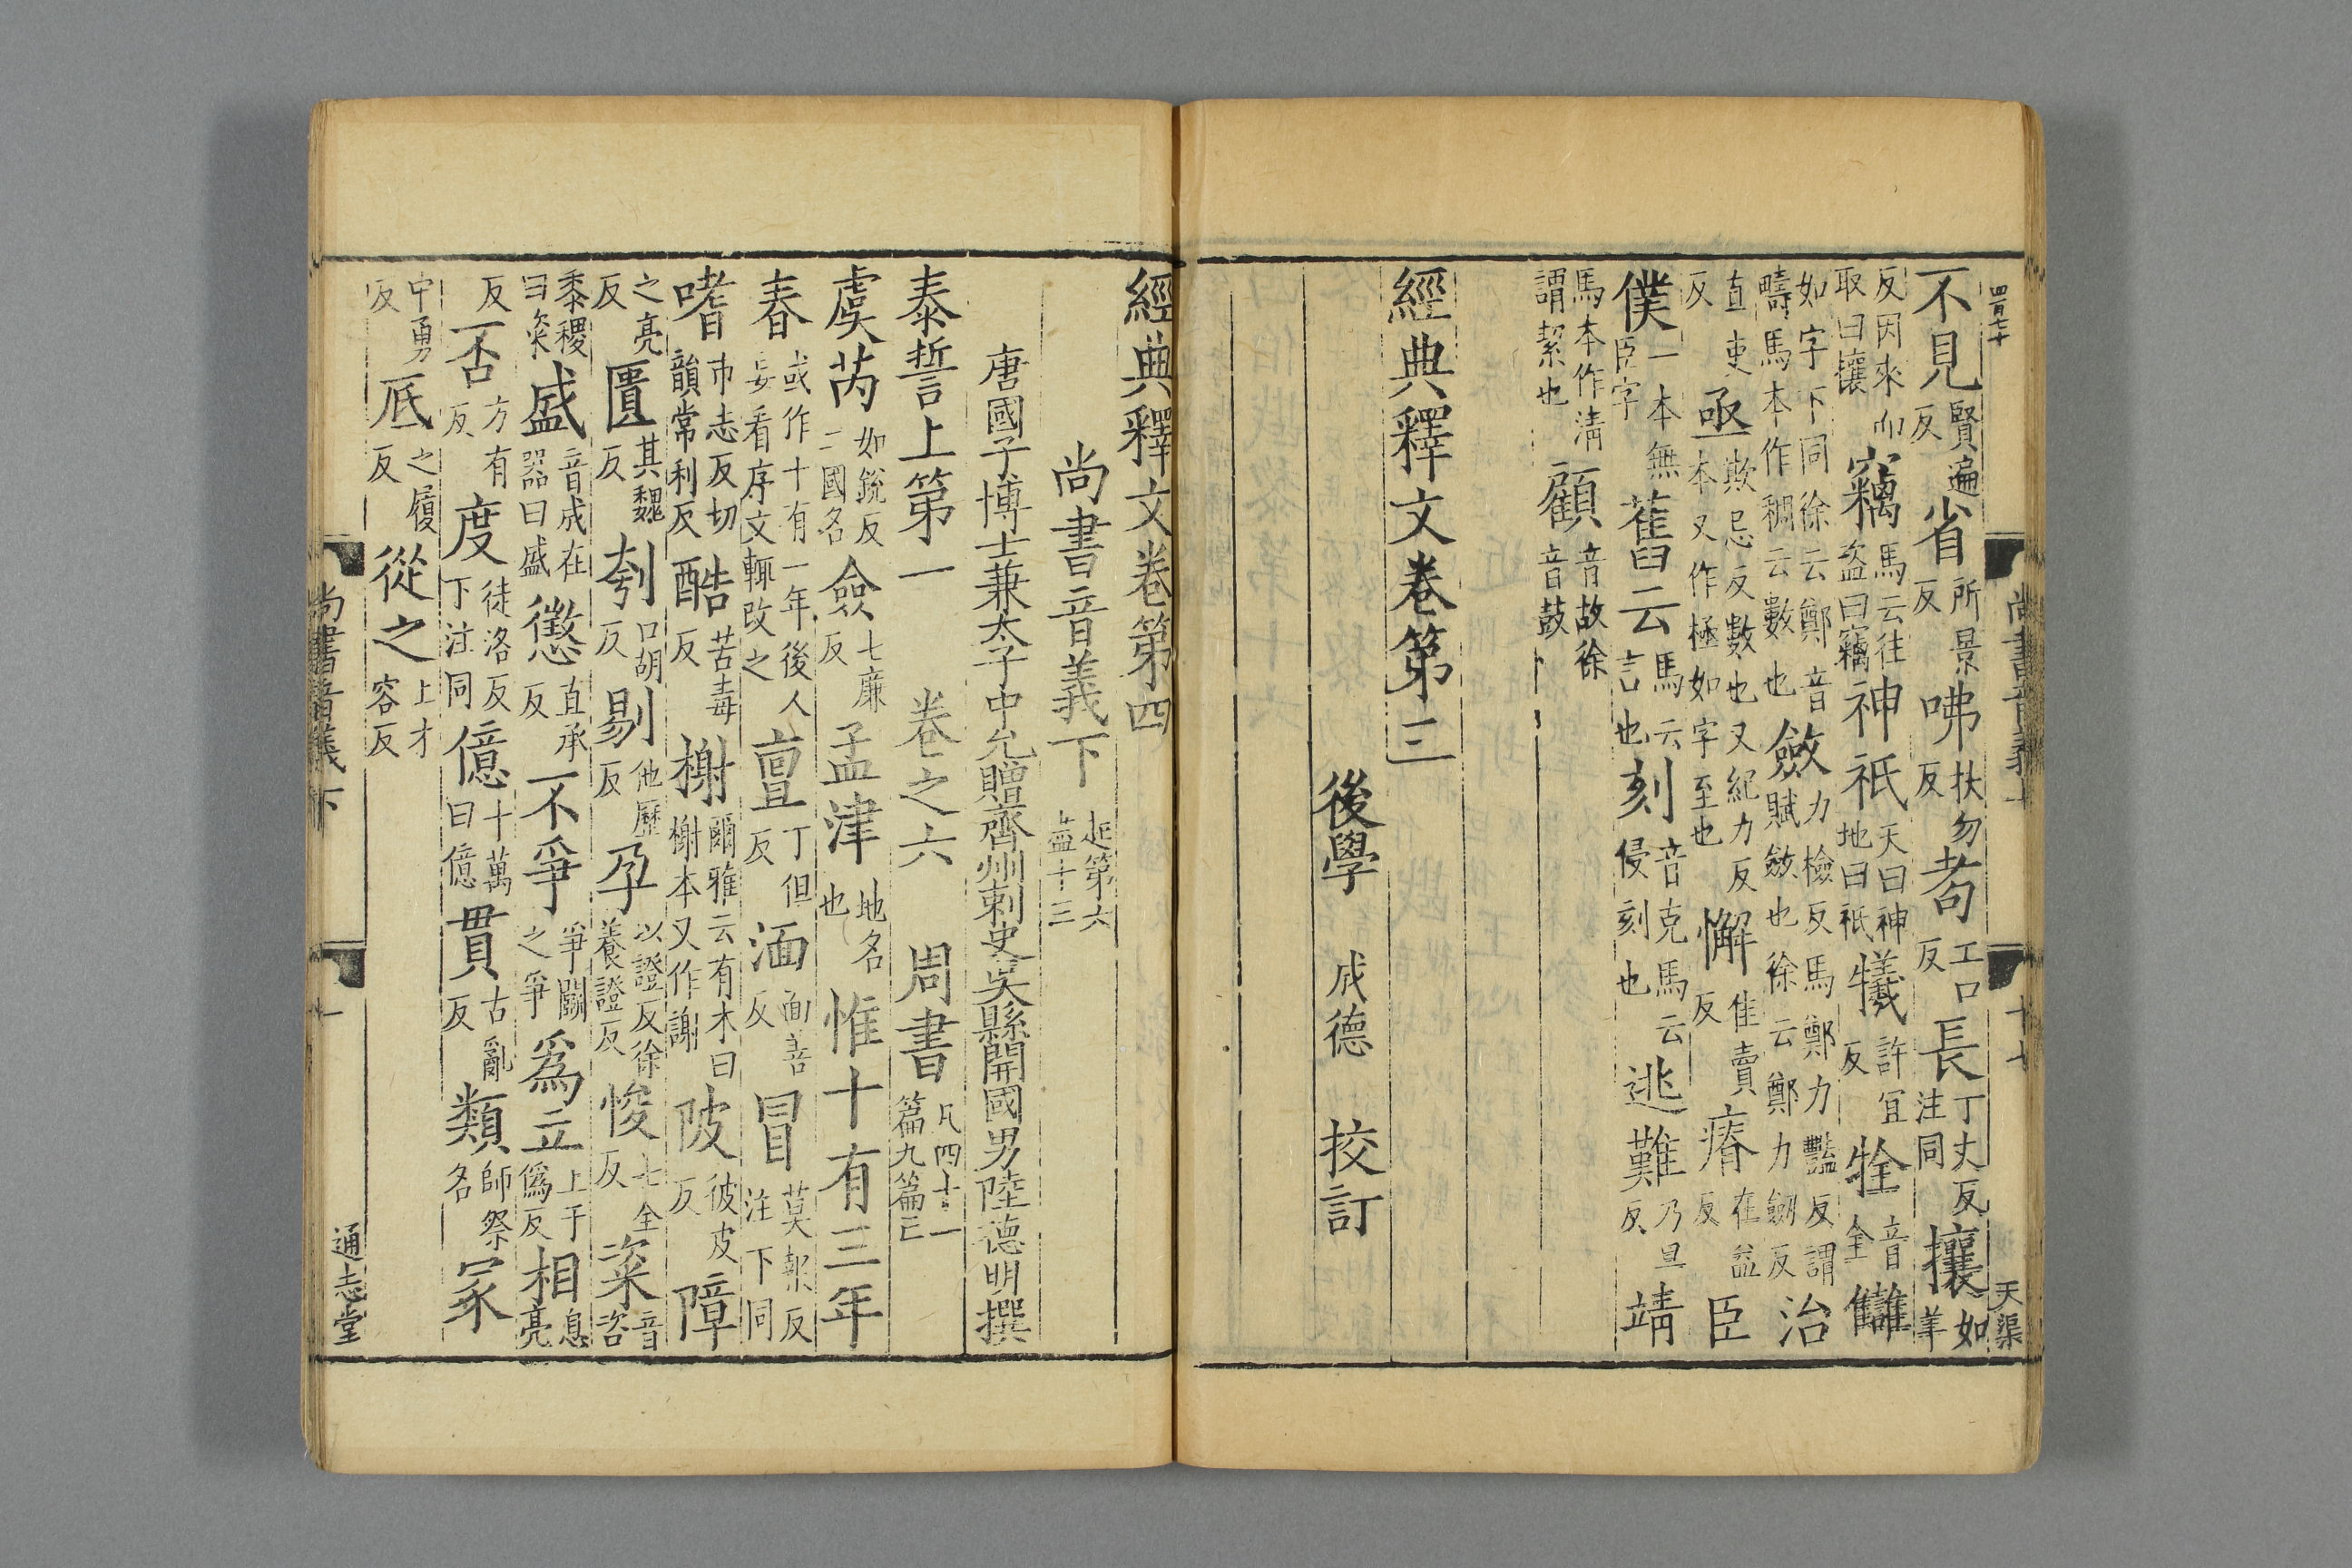 四百七十
尚書音義上 十七 天渠
不見賢遍反省所景反咈扶勿反耇工口反長丁丈反注同攘如羊
反因來而取曰攘竊馬云往盜曰竊神祇天曰神地曰祇犧許宜反牷音全讎
如字下同徐云鄭音疇馬本作稠云數也斂力檢反馬鄭力豔反謂賦斂也徐云鄭力劒反治
直吏反亟欺忌反數也又紀力反本又作極如字至也懈佳賣反瘠在益反臣
僕一本無臣字舊云馬云言也刻音克馬云侵刻也逃難乃旦反靖
馬本作清謂絜也顧音故徐音鼓
經典釋文卷第三
後學 成德 挍訂
經典釋文卷第四
尚書音義下起第六盡十三
唐國子博士兼太子中允贈齊州刺史吳縣開國男陸德明撰
泰誓上第一 卷之六 周書凡四十一篇九篇亡
虞芮如銳反二國名僉七廉反孟津地名也惟十有三年
春或作十有一年後人妄看序文輒改之亶丁但反湎面善反冒莫報反注下同
嗜市志反切韻常利反酷苦毒反榭爾雅云有木曰榭本又作謝陂彼皮反障
之亮反匱其魏反刳口胡反剔他歷反孕以證反徐養證反悛七全反粢音咨
黍稷曰粢盛音成在器曰盛懲直承反不爭爭鬭之爭爲立上于僞反相息亮
反否方有反度徒洛反下注同億十萬曰億貫古亂反類師祭名冢
中勇反厎之履反從之上才容反
尚書音義下 一 通志堂